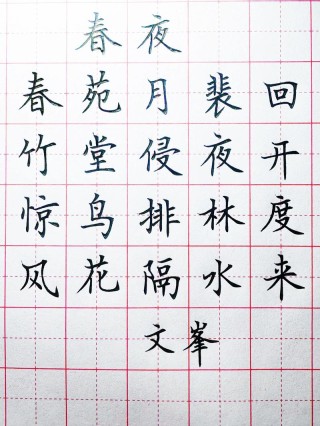 春夜
春苑月裴回
竹堂侵夜开
惊鸟排林度
风花隔水来
文峯